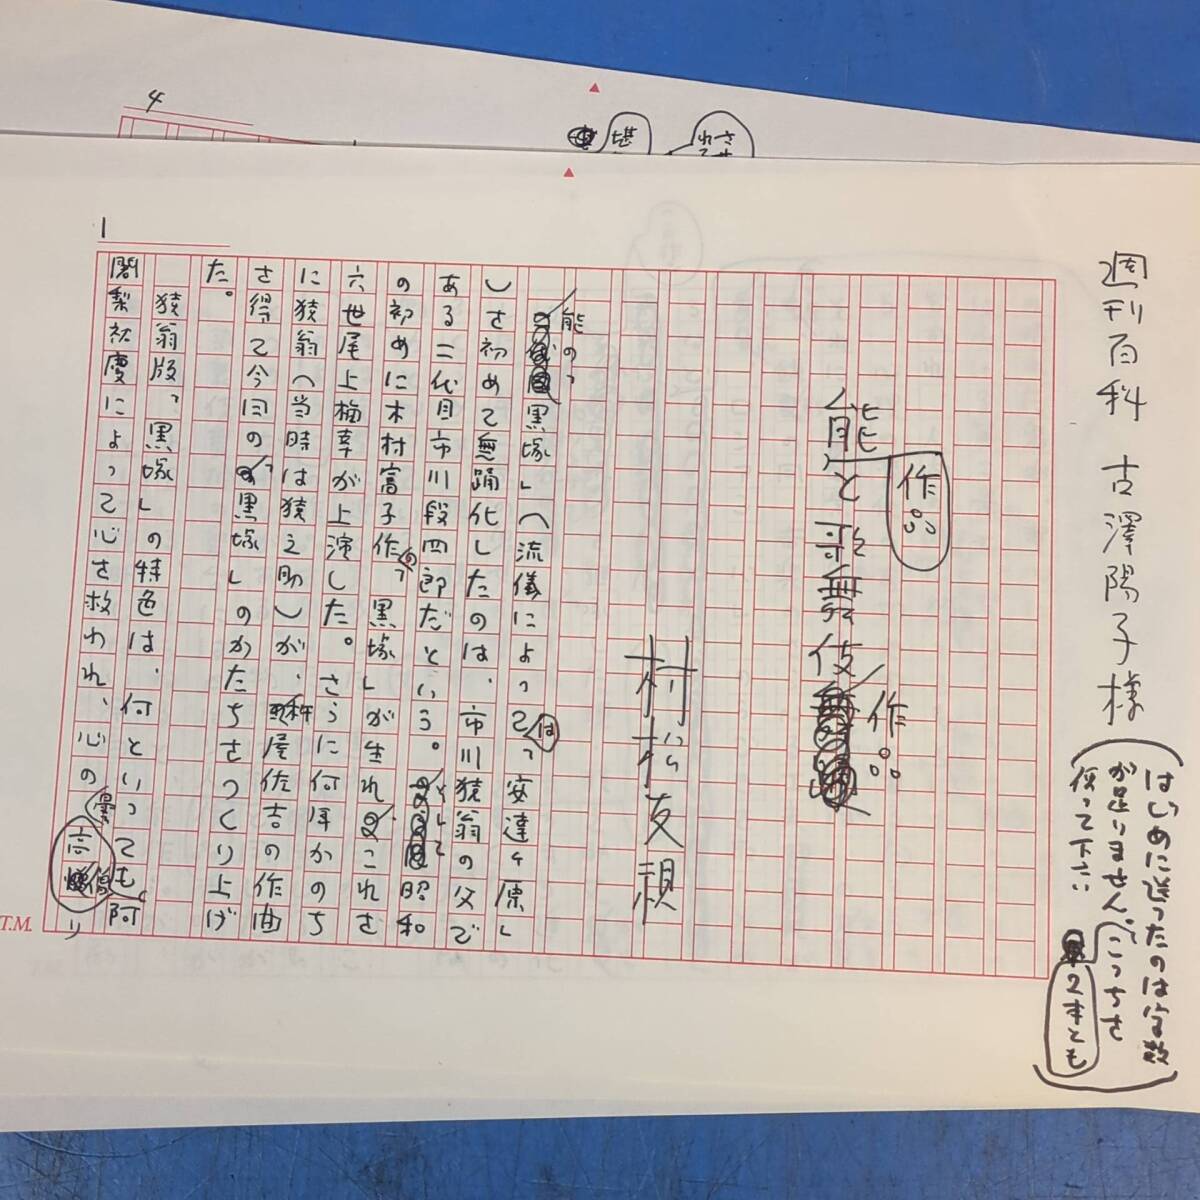 週刊百科 古澤陽子様
(はじめに送ったのは字数
が足りません。こっちを
使って下さい
2本とも)
作品
能と歌舞伎 作品
村松友視
能の「
黒塚」(流儀によっては「安達ヶ原」
)を初めて舞踊化したのは、市川猿翁の父で
ある二代目市川段四郎だという。そして昭和
の初めに木村富子作の「黒塚」が生れ、これを
六世尾上梅幸が上演した。さらに何年かのち
に猿翁(当時は猿之助)が、杵屋佐吉の作曲
を得て今日の「黒塚」のかたちをつくり上げ
た。
猿翁版「黒塚」の特色は、何といっても、阿
闍梨祐慶によって心を救われ、心の曇り
高僧
1
T.M.
4
堪
させ
れて